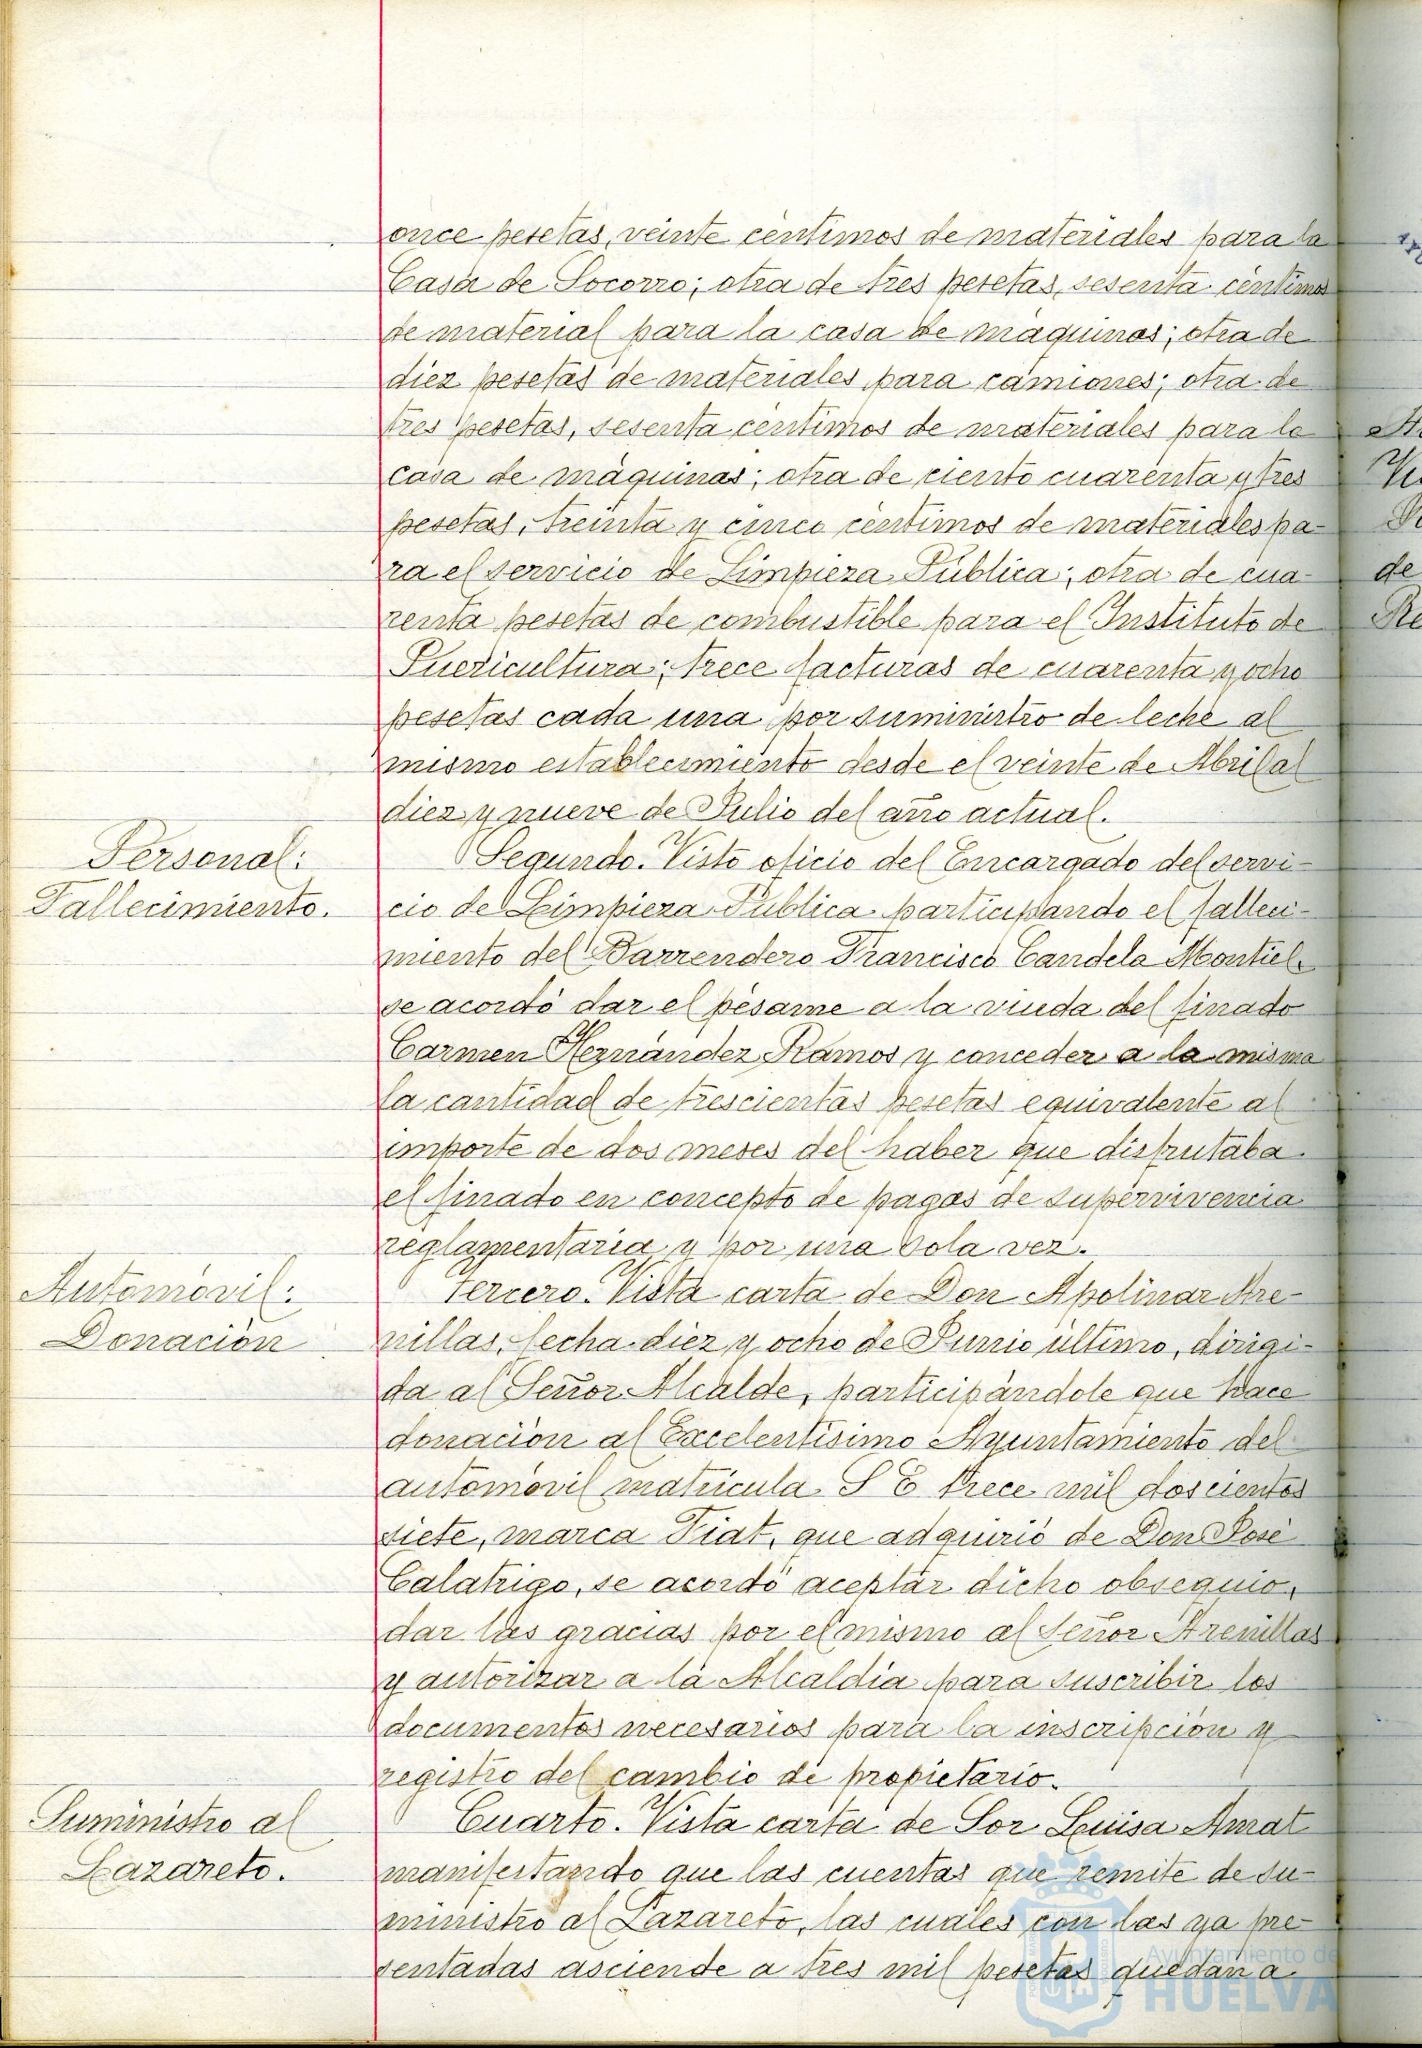 once pesetas, veinte céntimos de materiales para la
Casa de Socorro; otra de tres pesetas, sesenta céntimos
de material para la casa de máquinas; otra de
diez pesetas de materiales para camiones; otra de
tres pesetas, sesenta céntimos de materiales para la
casa de máquinas; otra de ciento cuarenta y tres
pesetas, treinta y cinco céntimos de materiales pa-
ra el servicio de Limpieza Pública; otra de cua-
renta pesetas de combustible para el Instituto de
Puericultura; trece facturas de cuarenta y ocho
pesetas cada una por suministro de leche al
mismo establecimiento desde el veinte de Abril al
diez y nueve de Julio del año actual.
Personal:
Fallecimiento.
Segundo. Visto oficio del Encargado del servi-
cio de Limpieza Pública participando el falleci-
miento del Barrendero Francisco Candela Montiel,
se acordó dar el pésame a la viuda del finado
Carmen Hernández Ramos y conceder a la misma
la cantidad de trescientas pesetas equivalente al
importe de dos meses del haber que disfrutaba
el finado en concepto de pagas de supervivencia
reglamentaria y por una sola vez.
Automóvil:
Donación
Tercero. Vista carta de Don Apolinar Are-
nillas, fecha diez y ocho de Junio último, dirigi-
da al Señor Alcalde, participándole que hace
donación al Excelentísimo Ayuntamiento del
automóvil matrícula S E trece mil doscientos
siete, marca Fiat, que adquirió de Don José
Calatrigo, se acordó aceptar dicho obsequio,
dar las gracias por el mismo al Señor Arenillas
y autorizar a la Alcaldía para suscribir los
documentos necesarios para la inscripción y
registro del cambio de propietario.
Suministro al
Lazareto.
Cuarto. Vista carta de Sor Luisa Amat
manifestando que las cuentas que remite de su-
ministro al Lazareto, las cuales con las ya pre-
sentadas asciende a tres mil pesetas quedan a
Ayuntamiento de
HUELVA
de
Re